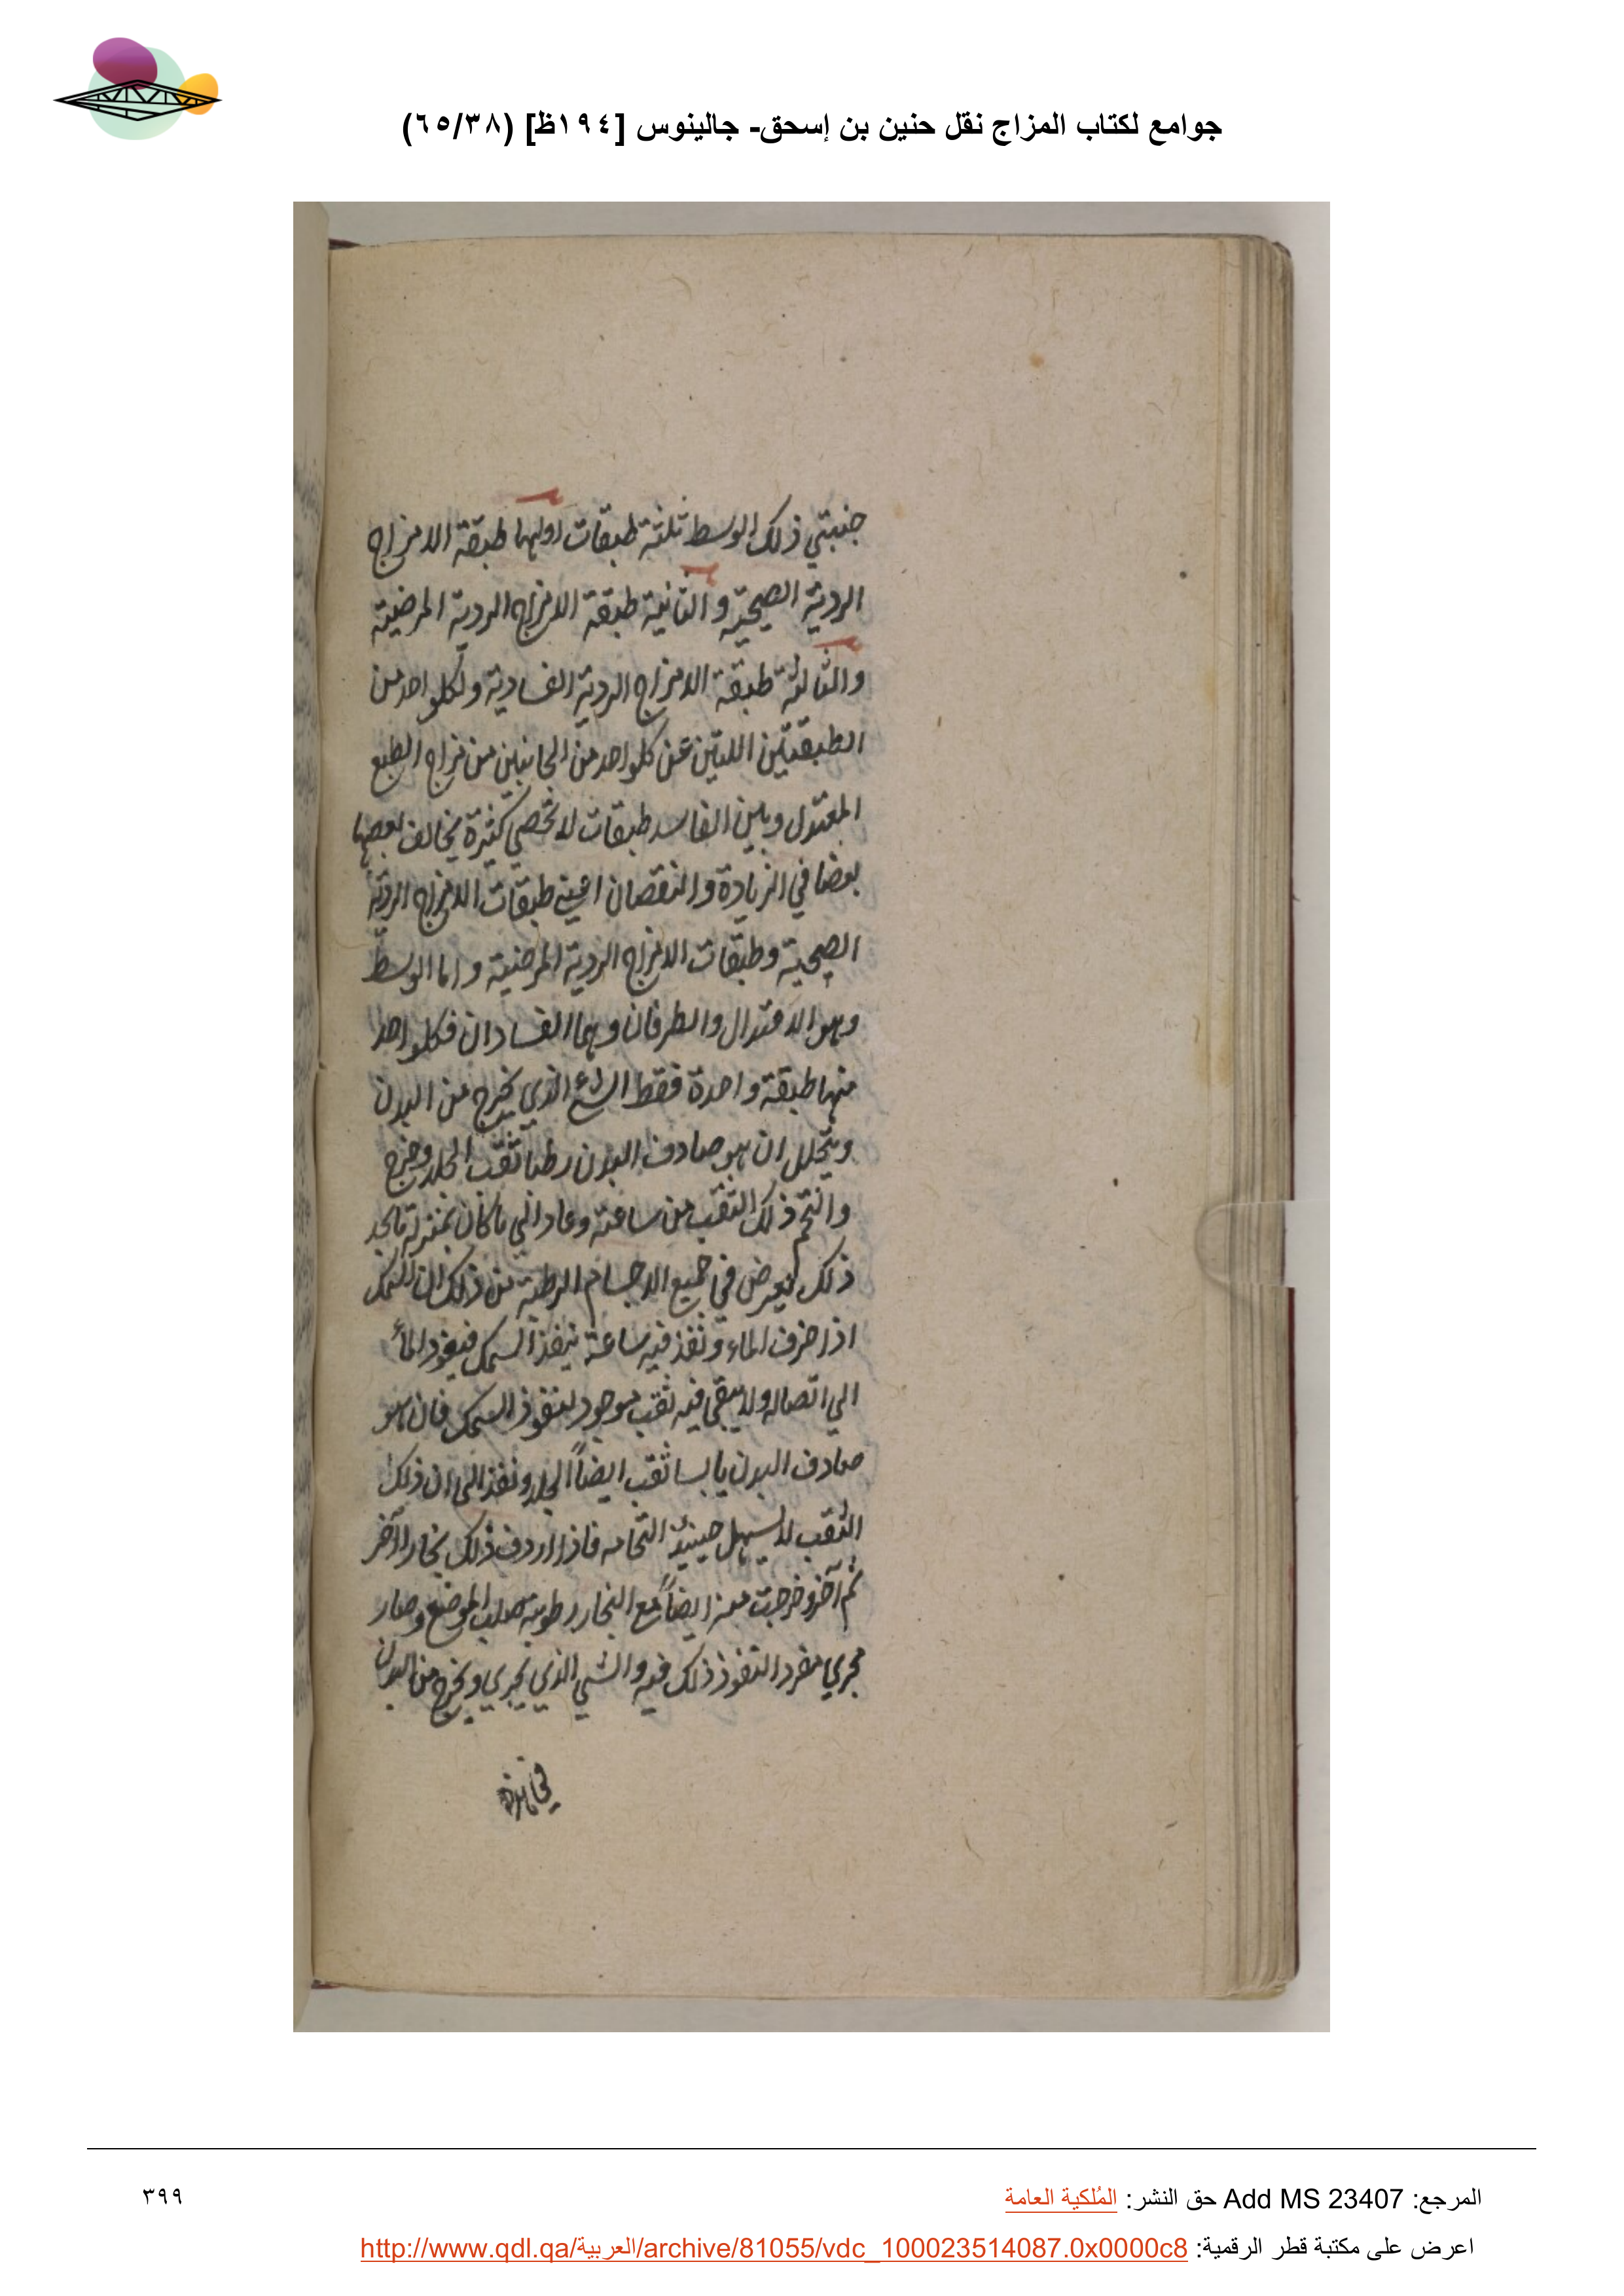 جوامع لكتاب المزاج نقل حنين بن إسحق- جالينوس [١٩٤ظ] (٦٥/٣٨)
جنبتي ذلك الوسط ثلثة طبقات اولها طبقة الامزاج
الردية الصحية والثانية طبقة الامزاج الردية المرضية
والثالثة طبقة الامزاج الردية الفسادية ولكلواحد من
الطبقتين اللتين عن كلواحد من الجانبين من مزاج الطبع
المعتدل وبين الفاسد طبقات لا تحصي كثيرة يخالف بعضها
بعضا في الزيادة والنقصان اعني طبقات الامزاج الردية
الصحية وطبقات الامزاج الردية المرضية واما الوسط
وهو الاعتدال والطرفان وهما الفسادان فكلواحد
منها طبقة واحدة فقط الشئ الذي يخرج من البدن
ويتحلل ان هو صادف البدن رطبا ثقب الجلد وخرج
والتحم ذلك الثقب من ساعته وعاد الي ما كان بمنزلة ما نجد
ذلك يعرض في جميع الاجسام الرطبة من ذلك ان السمك
اذا خرق الماء ونفذ فيه ساعة ينفذ السمك فيعود الماء
الي اتصاله ولا يبقي فيه ثقب موجود لنفوذ السمك فان هو
صادف البدن يابسا ثقب ايضاً الجلد ونفذ الى ان ذلك
الثقب لا يسهل حينئذ التحامه فاذا اردف ذلك بخار آخر
ثم آخر وخرجت عنه ايضاً مع البخار رطوبة صلب الموضع وصار
مجري مفردا لنفوذ ذلك فيه والشي الذي يجري ويخرج من البدن
في هذه
المرجع: Add MS 23407 حق النشر: المُلكية العامة
٣٩٩
اعرض على مكتبة قطر الرقمية: http://www.qdl.qa/العربية/archive/81055/vdc_100023514087.0x0000c8